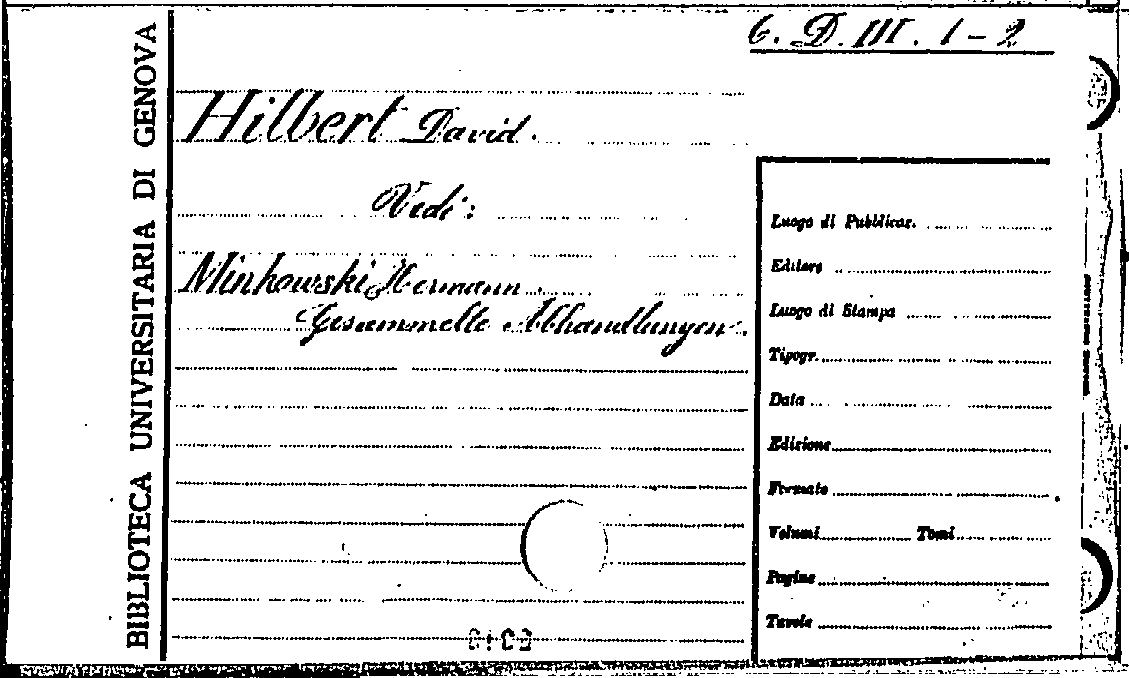 6. D. III. 1-2
BIBLIOTECA UNIVERSITARIA DI GENOVA
Hilbert David.
Vedi:
Minkowski Hermann
Gesammelte Abhandlungen.
Luogo di Pubblicaz.
Editore
Luogo di Stampa
Tipogr.
Data
Edizione
Formato
Volumi Tomi
Pagine
Tavole